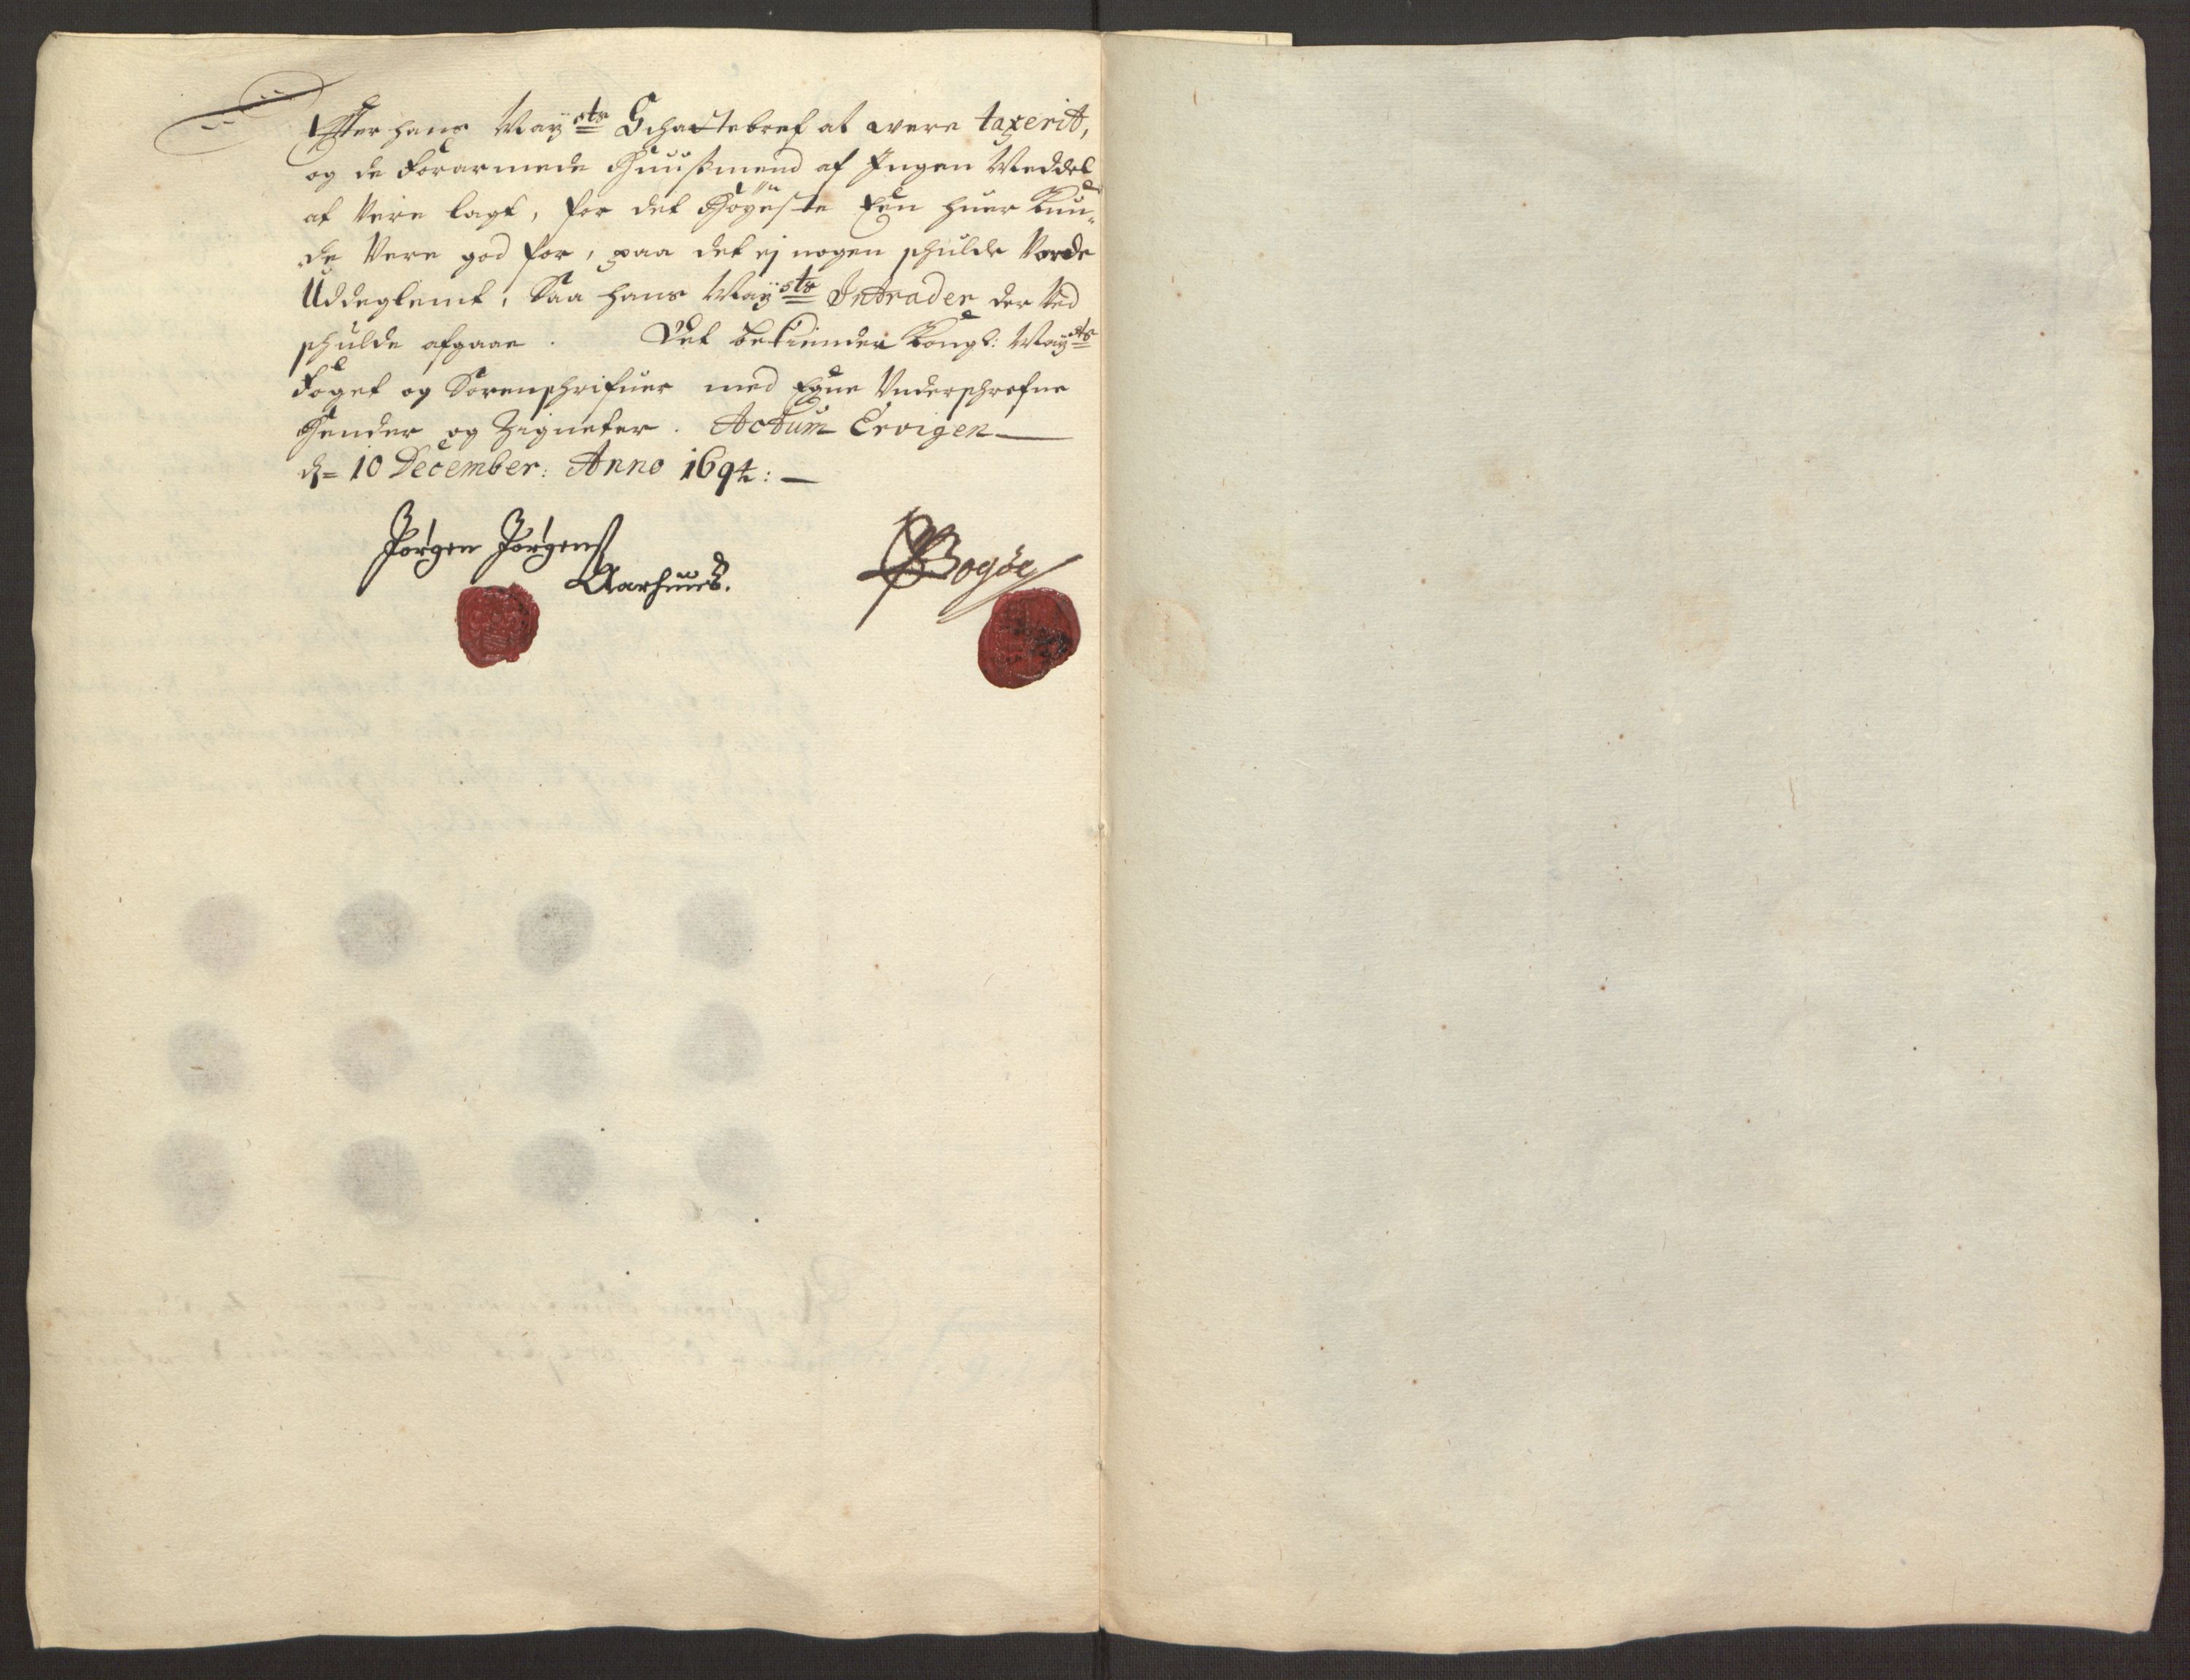 Efter hans Maÿsts Schattebref at were taxerit,
og de Forarmede Huusmend af Ingen Meddel
at Vere lagt, for det Høyeste Een huer Kun-
de Vere god for, paa det ej nogen schulde Vorde
Uddeglemt, Saa hans Maÿsts Intrader der Ved
schulde afgaae. Det bekiender Kongl: Maÿsts
Foget og Sorenschrifuer med Egne Underschrefne
Hender og Zigneter. Actum Ervigen
d= 10 December: Anno 1694:
Jørgen Jørgens
Aarhuus.
Bogøe